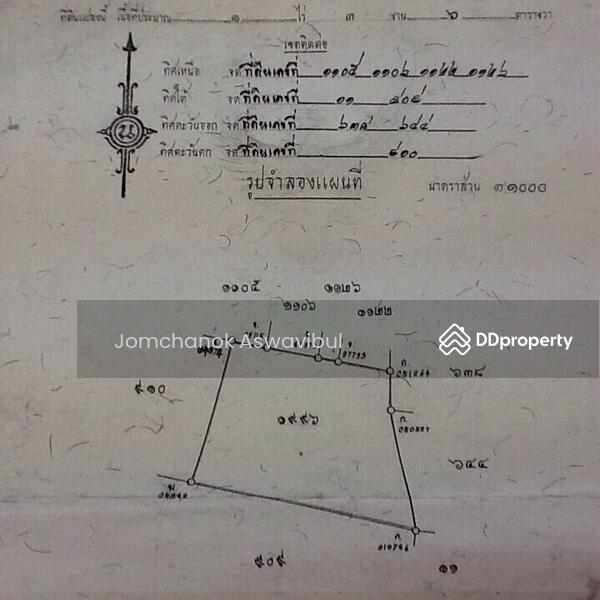 ที่ดินแปลงนี้ เนื้อที่ประมาณ ๑ ไร่ ๓ งาน ๖ ตารางวา
เขตติดต่อ
ทิศเหนือ จดที่ดินเลขที่ ๑๑๐๕ ๑๑๐๖ ๑๑๒๒ ๑๑๒๖
ทิศใต้ จดที่ดินเลขที่ ๑๑ ๙๐๙
ทิศตะวันออก จดที่ดินเลขที่ ๖๓๘ ๖๔๔
ทิศตะวันตก จดที่ดินเลขที่ ๙๑๐
น
รูปจำลองแผนที่ มาตราส่วน ๑:๑๐๐๐
๑๑๐๕ ๑๑๒๖
๑๑๐๖ ๑๑๒๒
Jomchanok Aswavibul DDproperty
๖๓๘
๙๑๐
๑๙๙๖
๖๔๔
๙๐๙ ๑๑